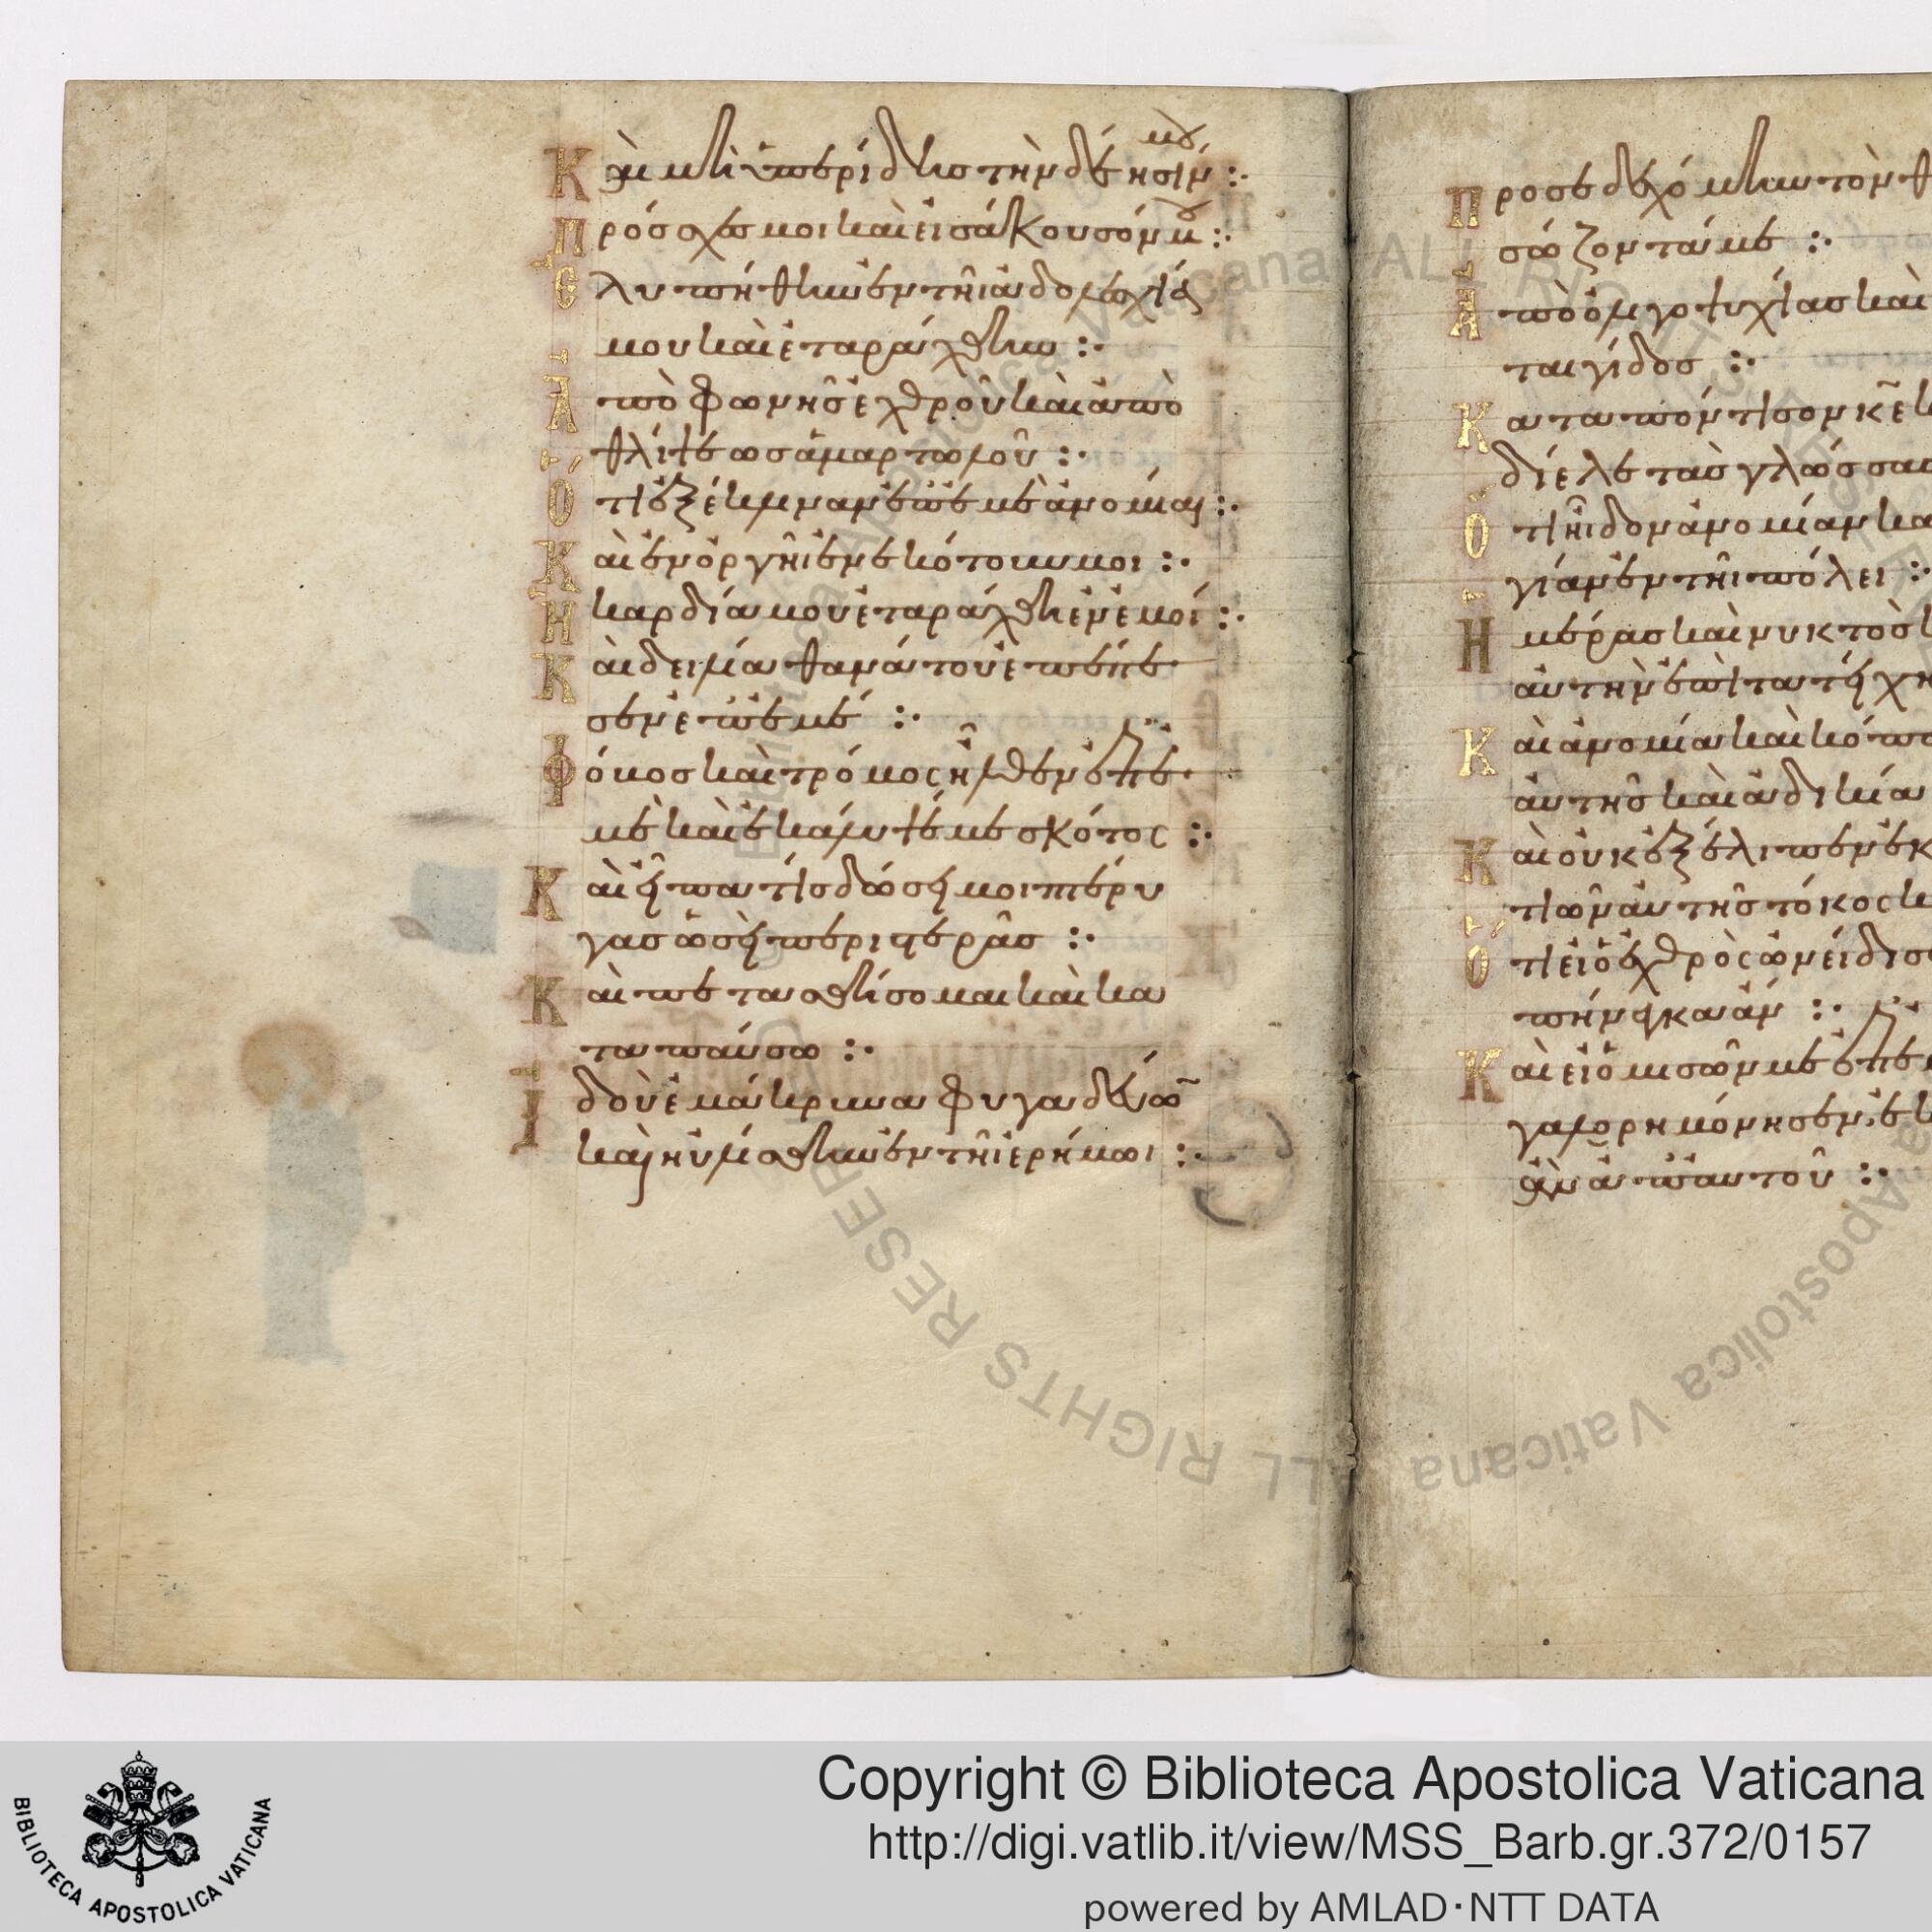 Κὰι μὴ ὑπερίδης τὴν δέησίν μου :·
Πρόσχες μοι καὶ εἰσάκουσόν μου :·
Ἐλυπήθην ἐν τῆι ἀδολεσχίᾳ
μου καὶ ἐταράχθην :·
Ἀπὸ φωνῆς ἐχθροῦ καὶ ἀπὸ
θλίψεως ἁμαρτωλοῦ :·
Ὅτι ἐξέκλιναν ἐπ ἐμὲ ἀνομίαν :·
Κὰι ἐν ὀργῆι ἐνεκότουν μοι :·
Ἡ καρδία μου ἐταράχθη ἐν ἐμοί :·
Κὰι δειλία θανάτου ἐπέπε
σεν ἐπ ἐμέ :·
Φόβος καὶ τρόμος ἦλθεν ἐπ ἐ
μὲ καὶ ἐκάλυψέ με σκότος :·
Κὰι εἶπα τίς δώσει μοι πτέρυ
γας ὡσεὶ περιστερᾶς :·
Κὰι πετασθήσομαι καὶ κα
ταπαύσω :·
Ἰδοὺ ἐμάκρυνα φυγαδεύων
καὶ ηὐλίσθην ἐν τῆι ἐρήμωι :·
Προσεδεχόμην τὸν θ
σώζοντά με :·
Ἀπὸ ὀλιγοψυχίας καὶ
καταιγίδος :·
Καταπόντισον κε κ
δίελε τὰς γλώσσας
Ὅτι εἶδον ἀνομίαν κα
γίαν ἐν τῆι πόλει :·
Ἡμέρας καὶ νυκτὸς κ
αὐτὴν ἐπὶ τὰ τείχη
Κὰι ἀνομία καὶ κόπο
αὐτῆς καὶ ἀδικία
Κὰι οὐκ ἐξέλιπεν ἐκ
τιῶν αὐτῆς τόκος κ
Ὅτι εἰ ὁ ἐχθρὸς ὠνείδισε
πήνεγκα ἄν :·
Κὰι εἰ ὁ μισῶν με ἐπ ἐ
γαλορημόνησεν ἐκ
ἂν ἀπ αὐτοῦ :·
Copyright © Biblioteca Apostolica Vaticana
http://digi.vatlib.it/view/MSS_Barb.gr.372/0157
powered by AMLAD·NTT DATA
BIBLIOTECA APOSTOLICA VATICANA